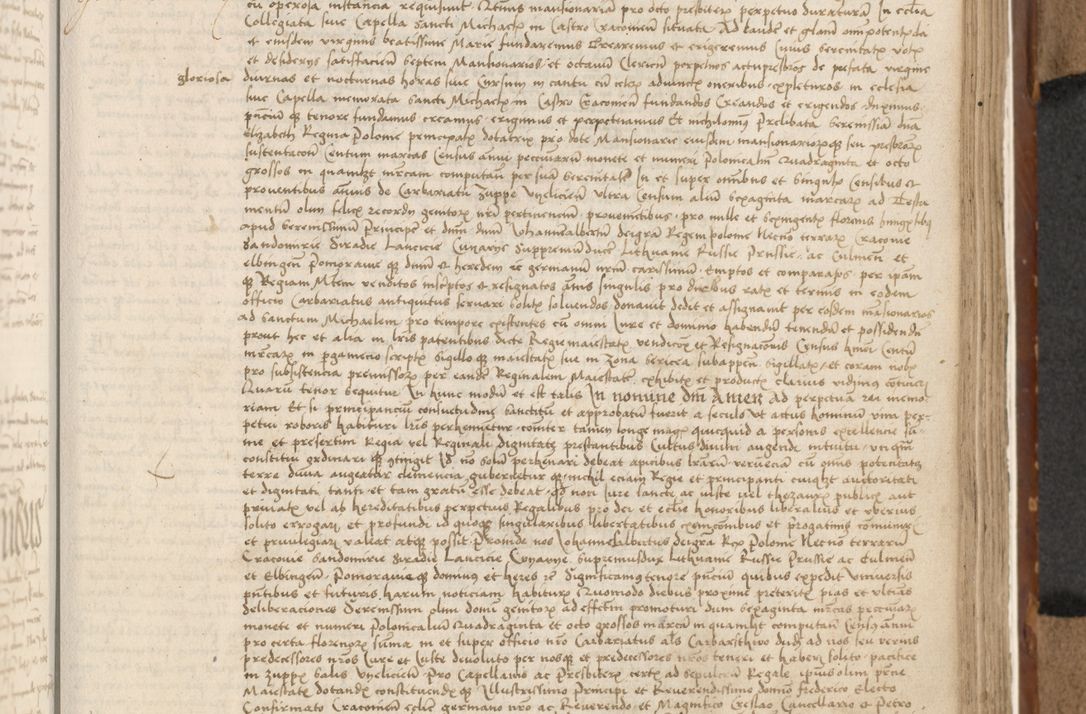 cu operosa instancia requisiuit Quatenus mansionariam pro octo presbiteris perpetuo duraturam In ecclia
Collegiata siue Capella sancti Michaelis in Castro Cracouien situata Ad laudem et gloriam omnipotentis dei
et eiusdem virginis beatissime Marie fundaremus Crearemus et erigeremus Cuius serenitatis votis
et desiderijs satisfacien septem Mansionarios et octauum Clericum perpetuos actu presbros de prefata virgine
gloriosa
diurnas et nocturnas horas siue Cursum in cantu cu alijs adiunctis oneribus expleturos in ecclesia
siue Capella memorata sancti Michaelis in Castro Cracouien fundandos Creandos et erigendos duximus
pntium q tenore fundamus creamus erigimus et perpetuamus Et nichilominus Prelibata Serenissima dna
Elizabeth Regina Polonie principalis dotatrix pro dote Mansionarie eiusdem mansionariorq seu presbroru
sustentacoe Centum marcas Census annui pecuniarum monete et numeri Polonicalis Quadraginta et octo
grossos in quamlibet mrcam computan per suam serenitatem In et super omnibus et singulis Censibus et
prouentibus annuis de Carbariatu Zuppe Vyeliciem vltra Censum alium sexaginta marcarum ad Testa
mentum olim felicis recordy genitoris nri pertinencium prouenientibus pro mille et sexingentis florenis hungaricalibus
apud serenissimum Principem et dnm dnm Iohannealbertum dei gra Regem polonie Necno terrarum Cracouie
Sandomirie Siradie Lancicie Cuyauie Suppremumducem Lithuanie Russie Prussie ac Culmen et
elbingen Pomoranie q dnum et heredem et germanum nrum carissimum Emptos et comparatos per ipam
q Regiam Mtem venditos inscriptos et resignatos annis singulis pro duobus ratis et terminis in eodem
officio Carbariatus antiquitus seruari solitis soluendos donauit dedit et assignauit per eosdem mansionarios
ad sanctum Michaelem pro tempore existentes cu omni Iure et dominio habendum tenendum et possidendum
prout hec et alia in lris patentibus dicte Regie maiestatis vendicois et Resignacoris Census huiusmodi Centum
mrcaru in pgameno scriptis sigillo q maiestatis sue in zona sericea subappensa sigillatis et coram nobis
pro subsistencia premissorum per eandem Reginalem Maiestatem exhibitis et productis clarius vidimus contineri
Quarum tenor sequitur In hunc modum et est talis In nomine dni Amen Ad perpetuam rei memo
riam Et si principancium consuetudinis sanctitum et approbatum fuerit a seculo vt actus hominum vim per
petui roboris habituri lris perhennietur comiter tamen longe magis quicquid a personis excellencie sum
me et presertim Regia vel Reginali dignitate prestantibus Cultus diuini augendi intuitu vtcumq
constitui ordinari q contingit Id no solum perhenari debeat apicibus lrarum verumeciam cu omnis potestatis
terre diuina augeatur clemencia gubernetur q nichil eciam Regie et principanti cuilibet auctoritati
et dignitati tanti et tam gratum esse debeat q non iure sancte ac iuste vel thezauris publicis aut
priuatis vel ab hereditatibus perpetuis Regalibus pro dei et ecclie honoribus liberalius et vberius
solito errogari et profundi id quoq singularibus libertatibus exempcionibus et progatiuis communiri
et priuilegiari valeat atq possit Proinde nos Iohannesalbertus dei gra Rex Polonie Necno terrarum
Cracouie Sandomirie Siradie Lancicie Cuyauie Supremusdux Lithuanie Russie Prussie ac Culmen
et Elbingen Pomoranie q dominus et heres et Significamus tenore pntium quibus expedit vniuersis
pntibus et futuris harum noticiam habituris Quomodo diebus proxime preteritis pias et vltimas
deliberaciones Serenissimi olim domini genitoris ad effectum promoturi dum sexaginta mrcas pecuniarum
monete et numeri Polonicalium Quadraginta et octo grossos marcam in quamlibet computan Census annui
pro certa florenorum suma in et super officio nro Carbariatus als Carbarsthwo dudum ad nos seu verius
predecessores nros iure et iuste deuoluto per nosq et predecessores nros teneri et haberi solito pacifice
in zuppis salis Vyeliciem Pro Capellanis ac Presbiteris certis ad sepulcrum Regale ipius olim prne
Maiestatis dotandis constituendis q Illustrissimo Principi et Reuerendissimo domino Frederico Electo
Confirmato Cracouien ecclie germano nro ac Reuerendo et Magnifico Creslao Cancellario et Petro